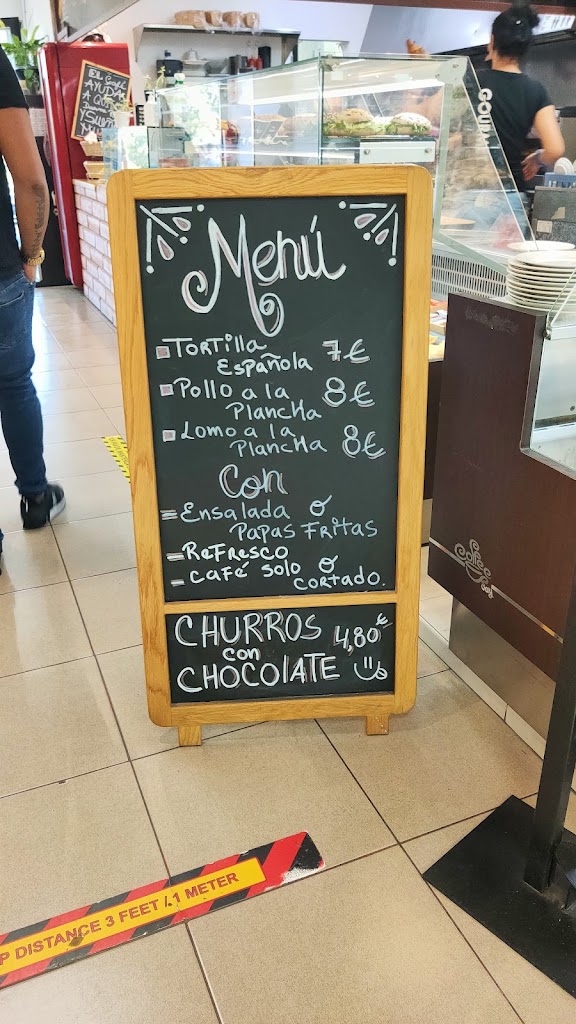 EL Café
AYUDA
A
Y
Menú
TORTILLA
ESPAÑOLA 7€
POLLO a la
PLANCHA 8€
LOMO a la
PLANCHA 8€
Con
ENSALADA Ó
PAPAS FRITAS
REFRESCO
CAFÉ SOLO Ó
CORTADO.
CHURROS 4,80€
con
CHOCOLATE
P DISTANCE 3 FEET / 1 METER
GOU
Coffee